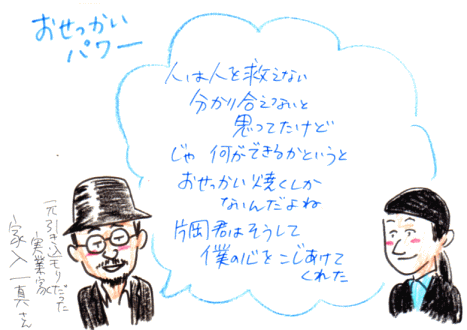 おせっかい
パワー
人は人を救えない
分かり合えないと
思ってたけど
じゃ 何ができるかというと
おせっかい焼くしか
ないんだよね
片岡君はそうして
僕の心をこじあけて
くれた
元引き込もりだった
実業家
家入一真さん